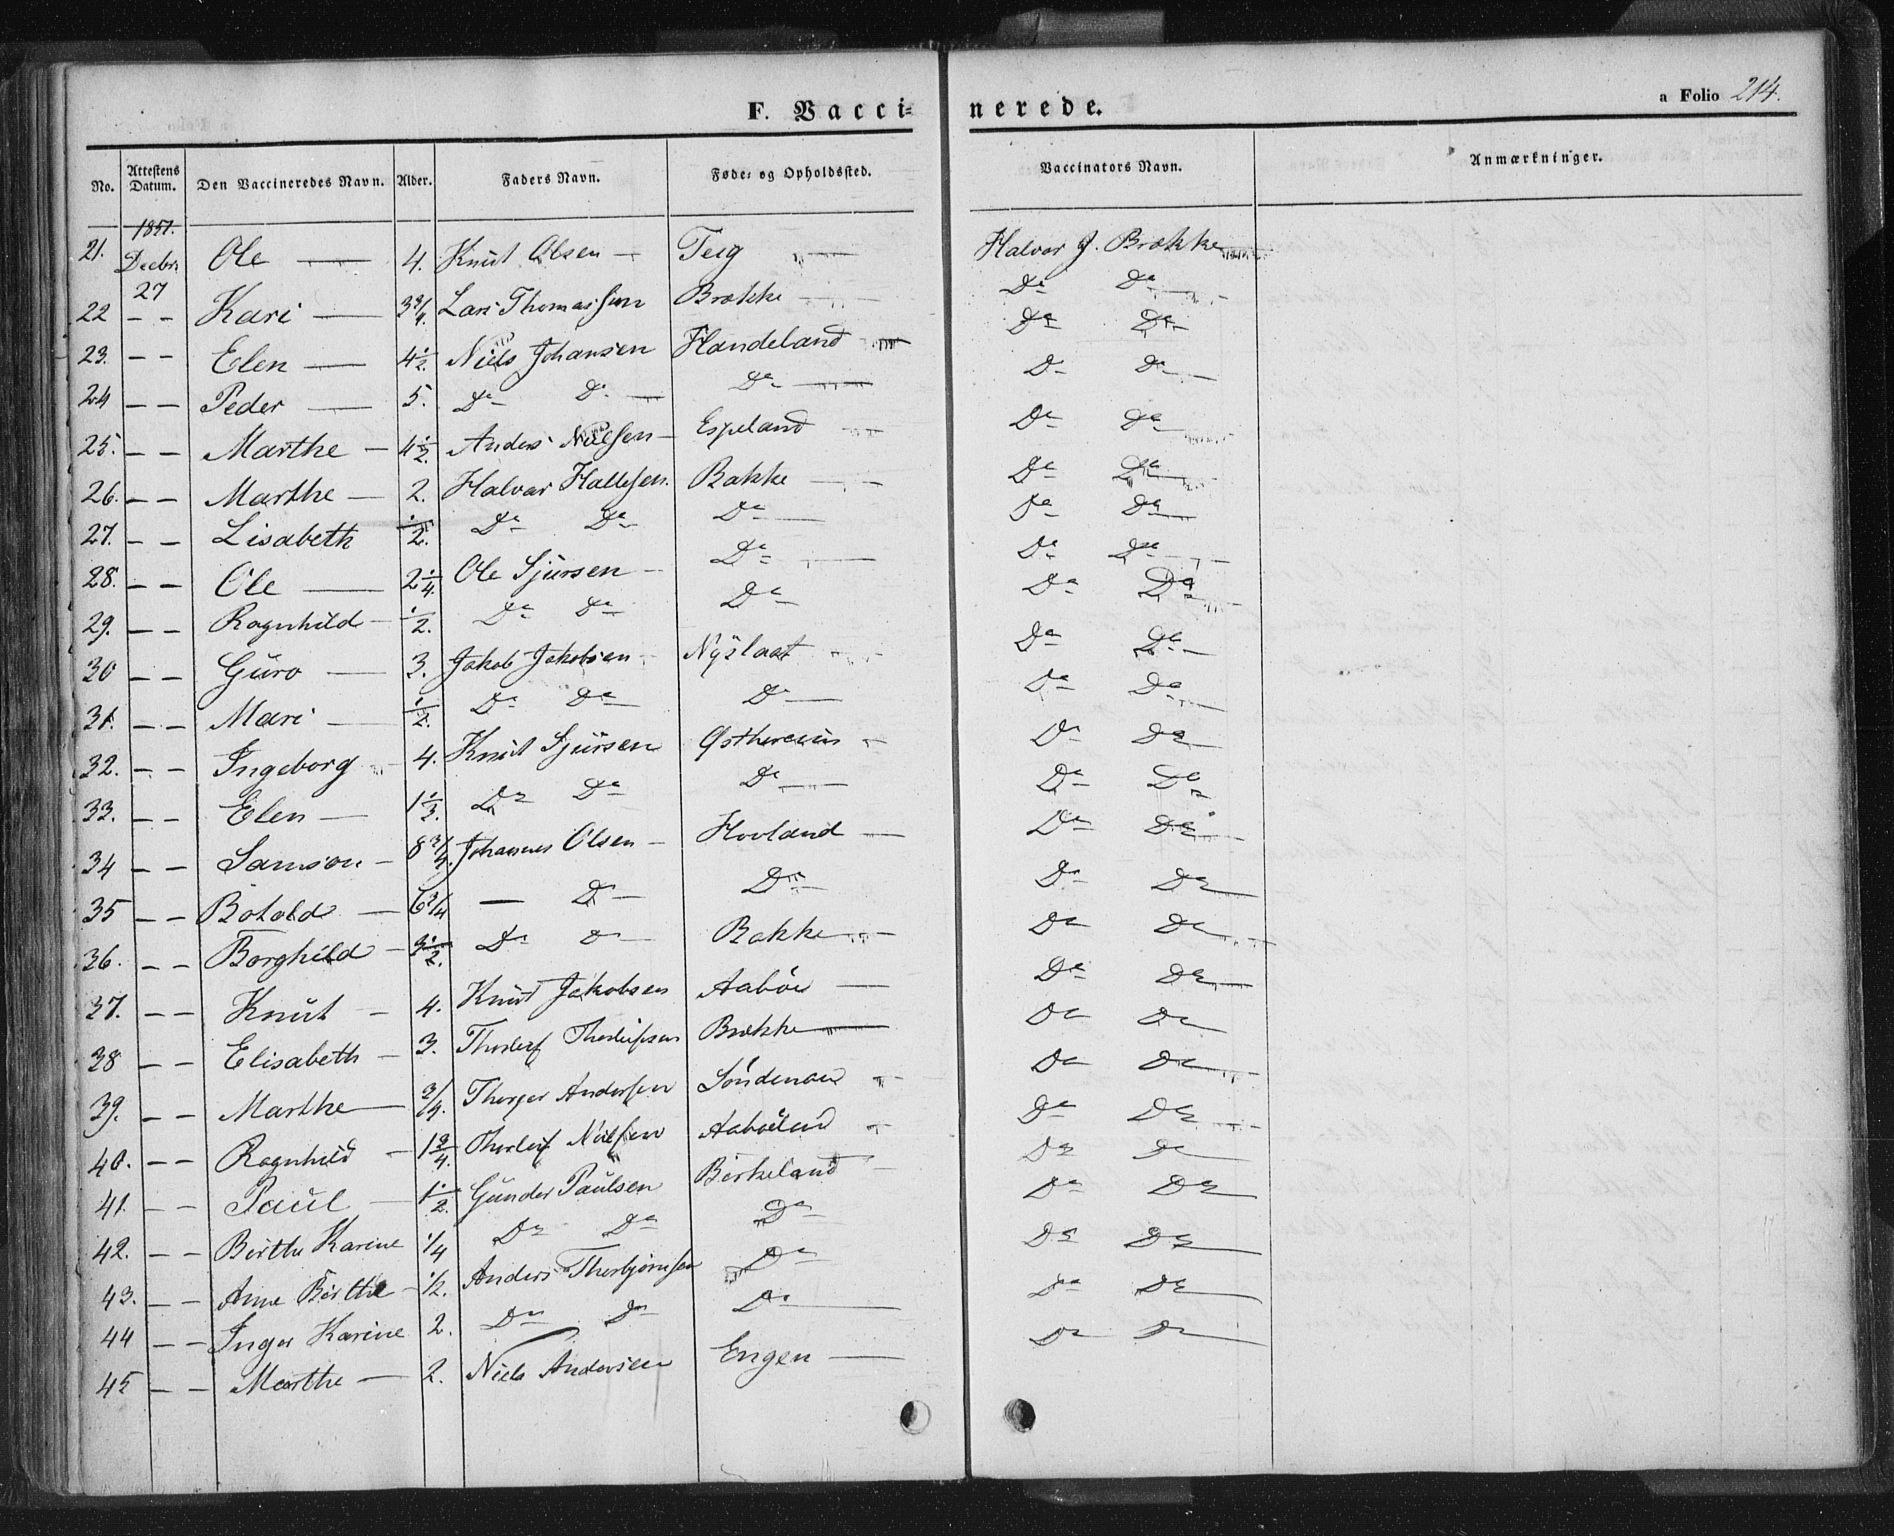 F. Vaccinerede.
a Folio 214.
No. Attestens Datum. Den Vaccineredes Navn. Alder. Faders Navn. Føde- og Opholdssted. Vaccinators Navn. Anmærkninger.
1851.
21. Decbr. 27 Ole — 4. Knut Olsen — Teig — Halvor J. Brække
22 - - Kari — 3 3/4. Lars Thomassen Brække Do Do
23. - - Elen — 4 1/2. Niels Johansen Handeland Do Do
24 - - Peder — 5. Do Do Do Do Do
25. - - Marthe — 4 1/2. Anders Nielsen Espeland Do Do
26. - - Marthe — 2. Halvor Hallesen Bakke Do Do
27. - - Lisabeth 1/2. Do Do Do Do Do
28. - - Ole — 2 1/4. Ole Sjursen — Do Do Do
29. - - Ragnhild 1/2. Do Do Do Do Do
30 - - Guro — 3. Jakob Jakobsen Nyslaat Do Do
31. - - Mari — 1/2. Do Do Do Do Do
32. - - Ingeborg 4. Knut Sjursen Do Do
33. - - Elen — 1 1/3. Do Do Do Do Do
34 - - Samson — 8 3/4. Johannes Olsen — Hovland — Do Do
35 - - Botold — 6 3/4 — Do Do Do Do
36. - - Borghild — 3 1/2. Do Do Bakke Do Do
37. - - Knut — 4. Knut Jakobsen Aaböe — Do Do
38 - - Elisabeth — 3. Thorleif Thorleifsen Brække Do Do
39. - - Marthe — 3/4. Thorger Andersen Söndenaae Do Do
40. - - Ragnhild — 1 3/4. Thorleif Nielsen Do Do
41. - - Paul — 1 1/2. Gunder Paulsen Birkeland Do Do
42. - - Berthe Karine 1/4 Do Do Do Do Do
43. - - Anne Berthe — 1/2. Anders Thorbjørnsen Do Do Do
44 - - Inger Karine 2. Do Do Do Do Do
45 - - Marthe — 2. Niels Andersen Engen — Do Do